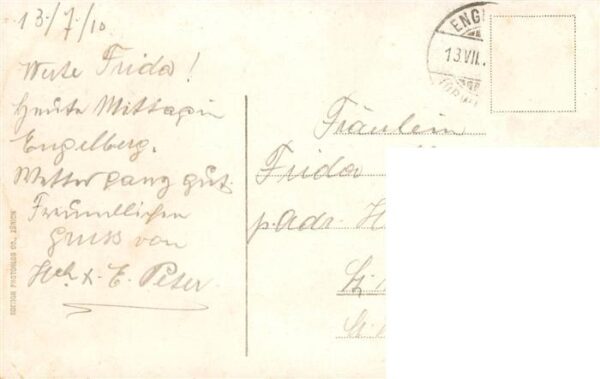 13/7/10
Werte Frida!
Heute Mittag in
Engelberg.
Wetter ganz gut.
Freundlichen
Gruss von
Hch & E. Peter
ENG
13.VII.
Fräulein
Frida
p. Adr. H
St.
EDITION PHOTOGLOB CO., ZÜRICH